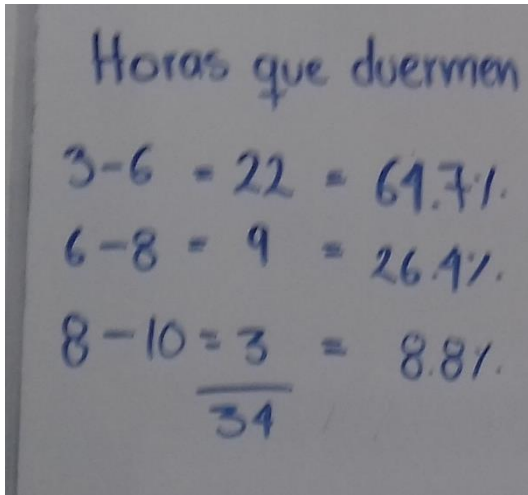 Horas que duermen
3-6 = 22 = 64.7%.
6-8 = 9 = 26.4%.
8-10 = 3 = 8.8%.
34